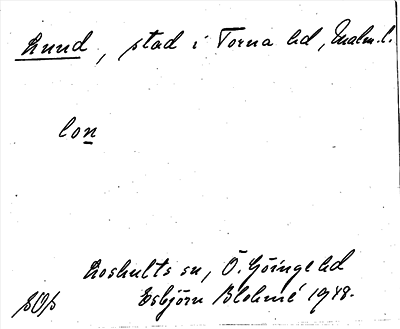 Lund, stad i Torna hd, Malm. l.
lon
Loshults sn, Ö. Göinge hd
Esbjörn Blohmé 1948.